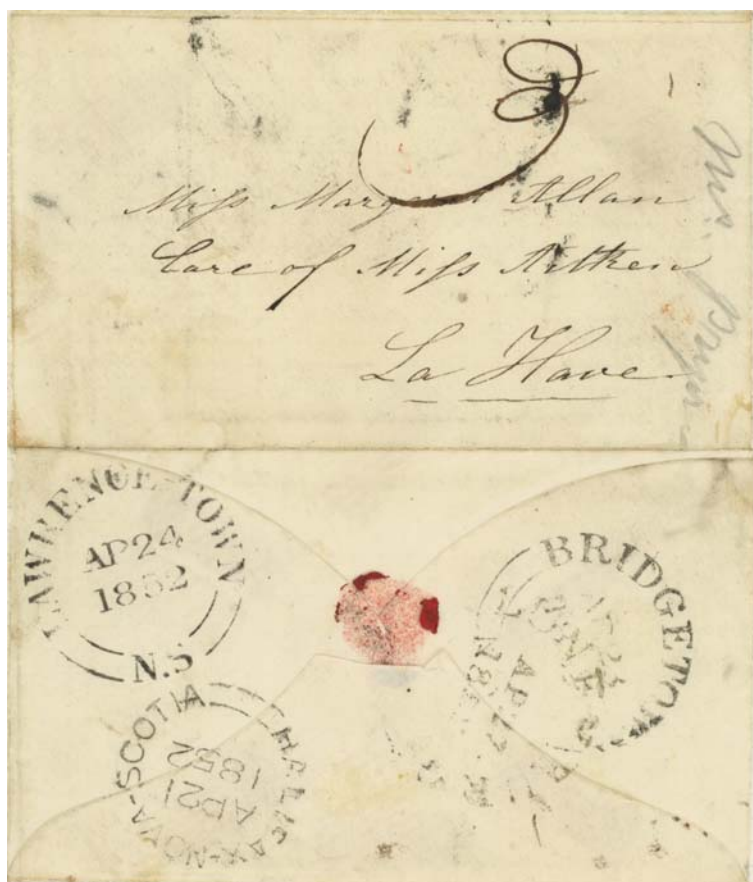 3
Miss Margaret Allan
Care of Miss Aitken
La Have
LAWRENCE-TOWN
AP 24
1852
N.S
BRIDGETOWN
HALIFAX-NOVA-SCOTIA
AP 21
1852